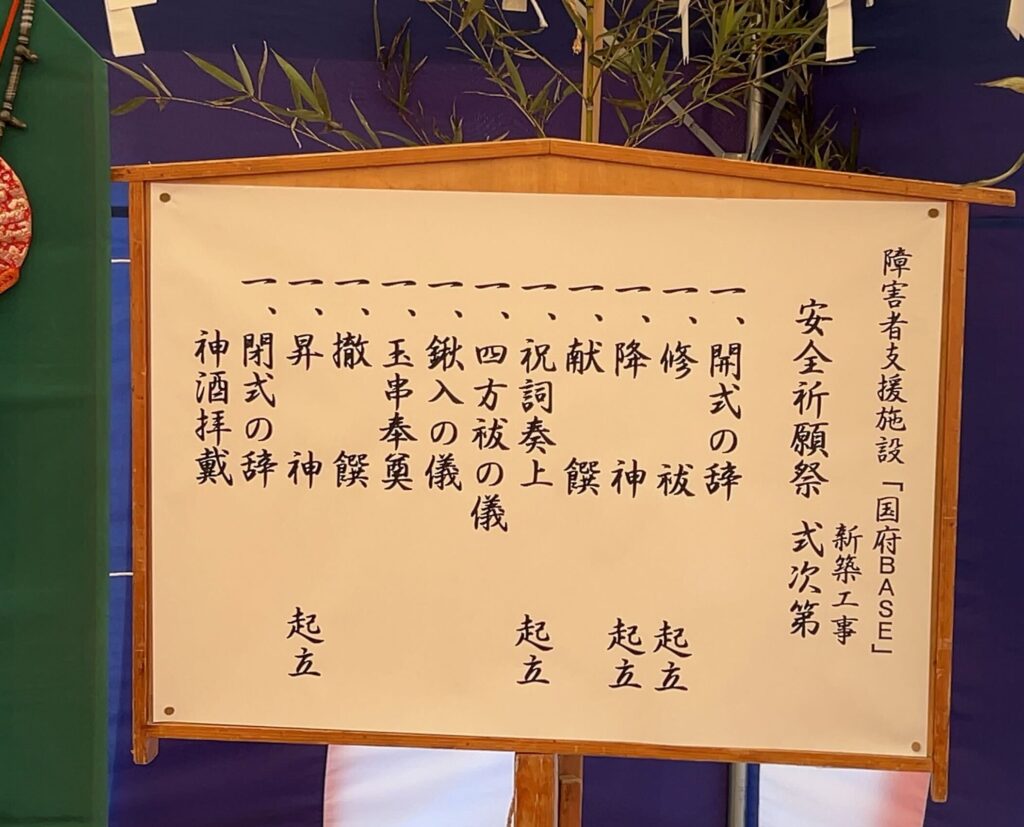 障害者支援施設「国府BASE」
新築工事
安全祈願祭 式次第
一、開式の辞
一、修 祓 起立
一、降 神 起立
一、献 饌
一、祝詞奏上 起立
一、四方祓の儀
一、鍬入の儀
一、玉串奉奠
一、撤 饌
一、昇 神 起立
一、閉式の辞
神酒拝戴